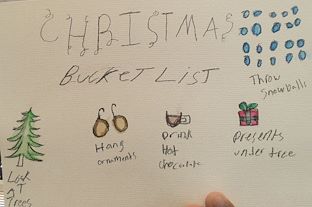 CHRISTMAS
BUCKET LIST
Throw
Snowballs
Hang
ornaments
Drink
Hot
chocolate
Presents
under tree
Look
AT
Trees